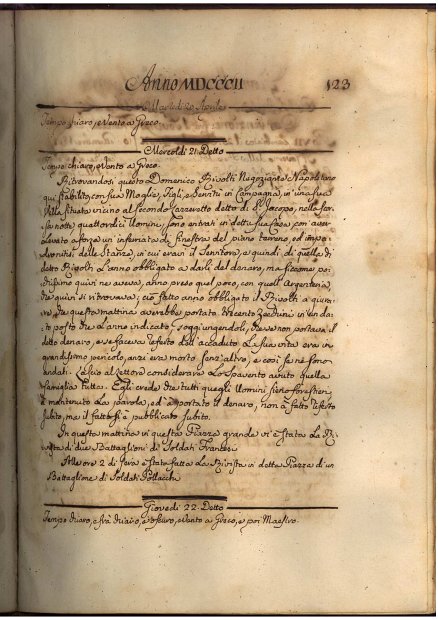 Anno MDCCCII 123
Martedì 20 Aprile
Tempo chiaro, e Vento a Greco.
Mercoldì 21. Detto
Tempo chiaro, e Vento a Greco.
Ritrovandosi questo Domenico Rivolti Negoziante Napoletano
qui stabilito, con sua Moglie, Figli, e Servitù in Campagna, in una sua
Villa situata vicino al secondo Lazzeretto detto di S. Jacopo, nella scor-
sa notte quattordici Uomini, sono entrati in detta sua Casa, con aver
levato a forza un inferriata di finestra del piano terreno, ed impa-
dronitisi delle Stanze, in cui eran il Servitore, e quindi di quella di
detto Rivolti l'anno obbligato a darli del denaro, ma siccome po-
chissimo quivi ne aveva, anno preso quel poco, con quell'Argenteria,
che quivi si ritrovava; ciò fatto anno obbligato il Rivolti a giura-
re, che questa mattina averebbe portato Trecento Zecchini in un da-
to posto che l'anno indicato, soggiungendoli, che se non portava il
detto denaro, e se faceva referto dell'accaduto la sua vita era in
grandissimo pericolo, anzi era morto senz'altro, e così se ne sono
andati. Lascio al Lettore considerare lo spavento avuto quella
famiglia tutta. Egli crede che tutti quegli Uomini sieno forestieri,
à mantenuto la parola, ed à portato il denaro, non à fatto referto
subito, ma il fatto si è pubblicato subito.
In questa mattina in questa Piazza grande vi è stata la Ri-
vista di due Battaglioni di Soldati Francesi
Alle ore 2 di sera è stata fatta la Rivista in detta Piazza di un
Battaglione di Soldati Pollacchi
Giovedì 22. Detto
Tempo chiaro, e frà chiaro, e oscuro, e Vento a Greco, e poi Maestro.